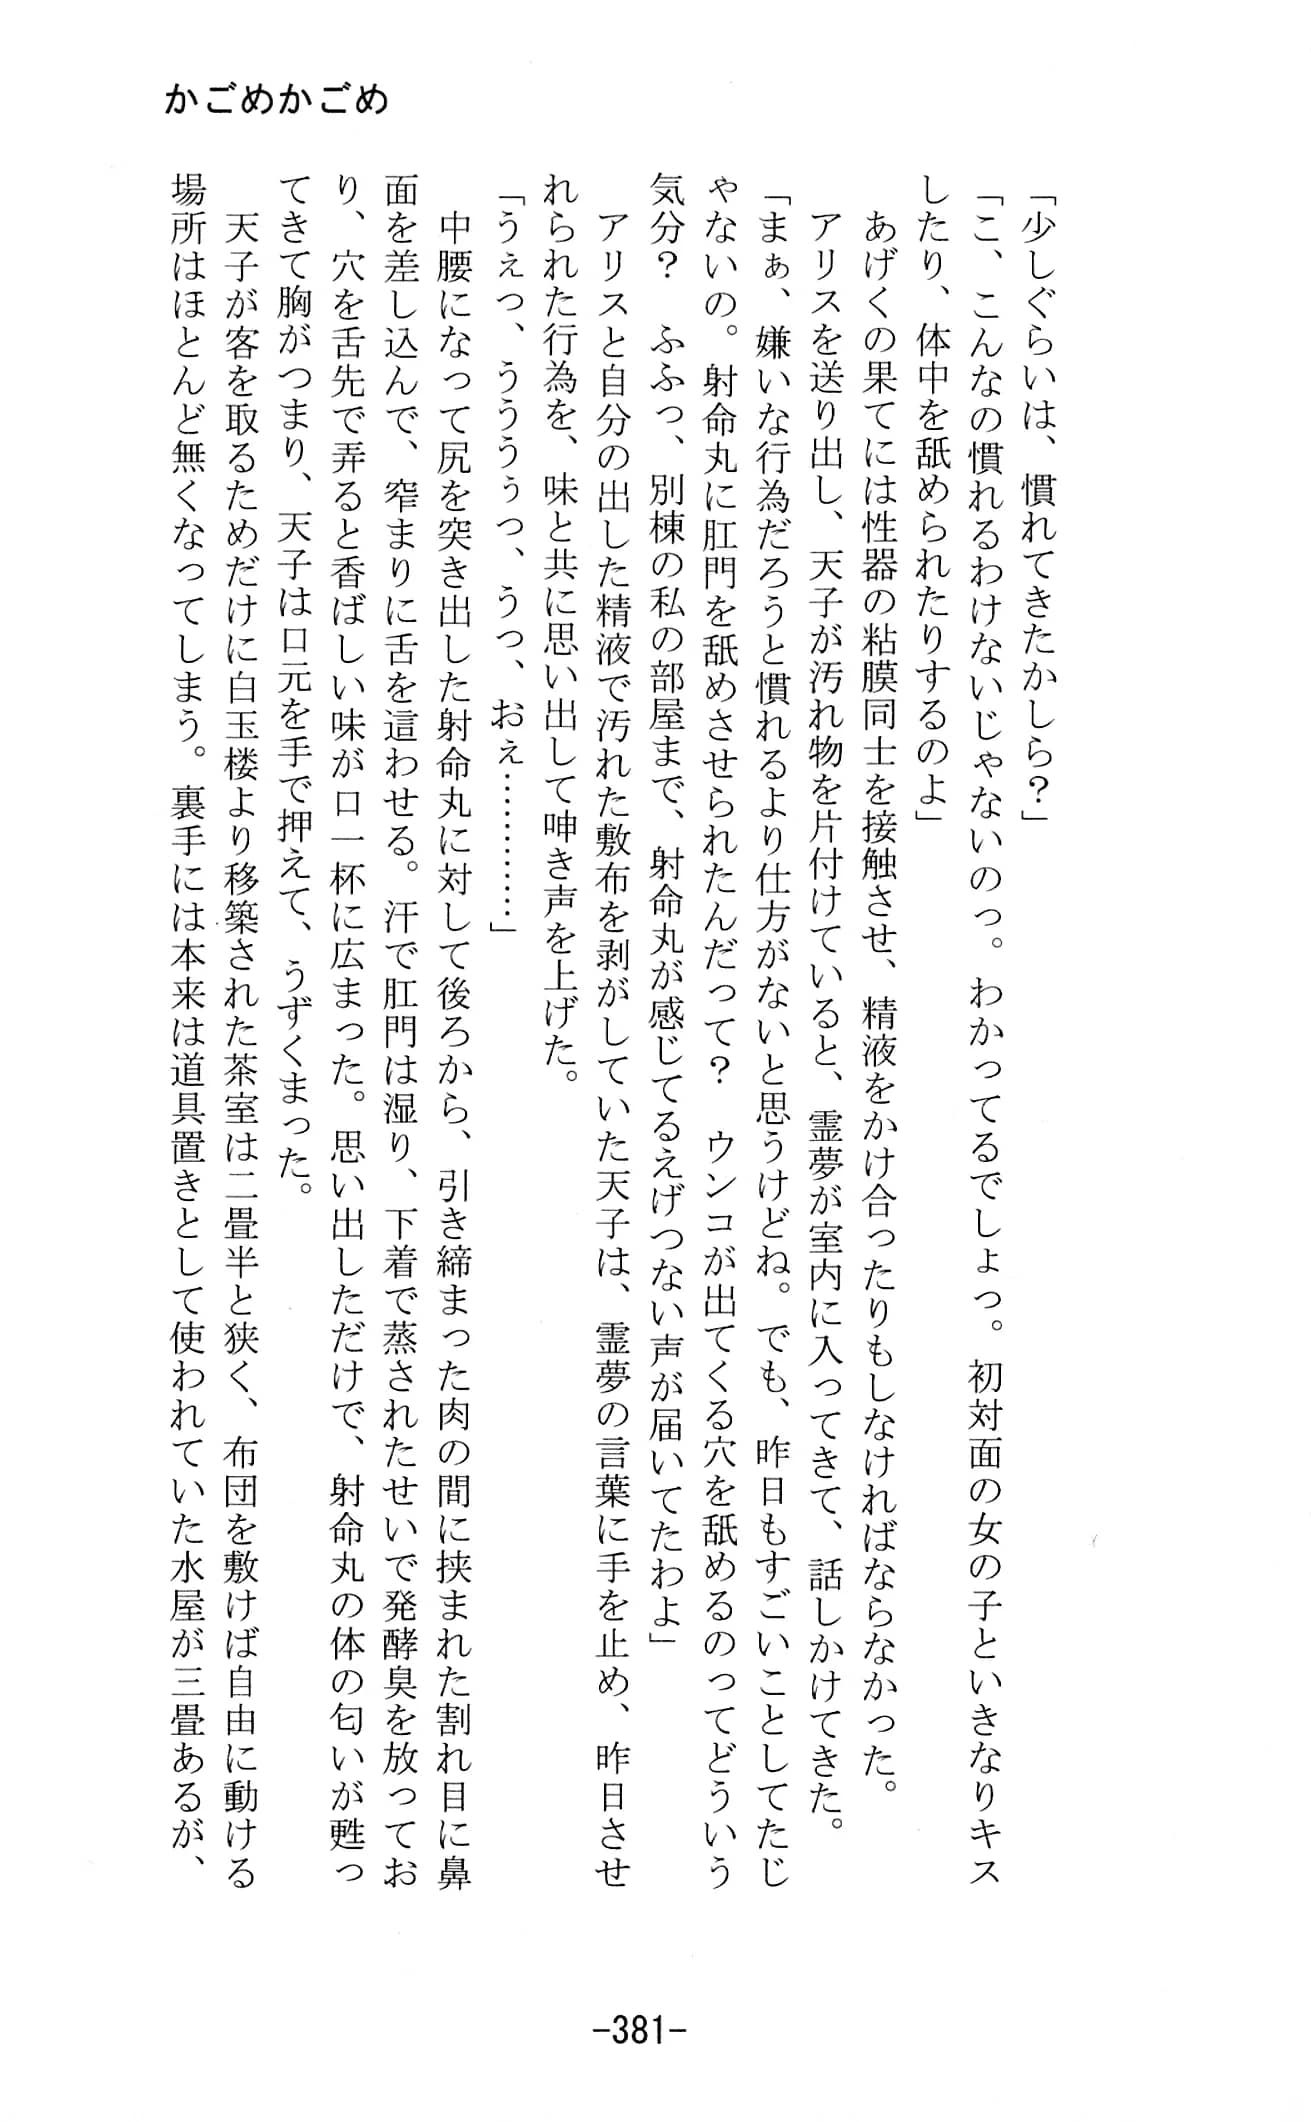 かごめかごめ
「少しぐらいは、慣れてきたかしら？」
「こ、こんなの慣れるわけないじゃないのっ。わかってるでしょっ。初対面の女の子といきなりキス
したり、体中を舐められたりするのよ」
あげくの果てには性器の粘膜同士を接触させ、精液をかけ合ったりもしなければならなかった。
アリスを送り出し、天子が汚れ物を片付けていると、霊夢が室内に入ってきて、話しかけてきた。
「まぁ、嫌いな行為だろうと慣れるより仕方がないと思うけどね。でも、昨日もすごいことしてたじ
ゃないの。射命丸に肛門を舐めさせられたんだって？　ウンコが出てくる穴を舐めるのってどういう
気分？　ふふっ、別棟の私の部屋まで、射命丸が感じてるえげつない声が届いてたわよ」
アリスと自分の出した精液で汚れた敷布を剥がしていた天子は、霊夢の言葉に手を止め、昨日させ
れられた行為を、味と共に思い出して呻き声を上げた。
「うぇっ、うううぅっ、うっ、おぇ…………」
中腰になって尻を突き出した射命丸に対して後ろから、引き締まった肉の間に挟まれた割れ目に鼻
面を差し込んで、窄まりに舌を這わせる。汗で肛門は湿り、下着で蒸されたせいで発酵臭を放ってお
り、穴を舌先で弄ると香ばしい味が口一杯に広まった。思い出しただけで、射命丸の体の匂いが甦っ
てきて胸がつまり、天子は口元を手で押えて、うずくまった。
天子が客を取るためだけに白玉楼より移築された茶室は二畳半と狭く、布団を敷けば自由に動ける
場所はほとんど無くなってしまう。裏手には本来は道具置きとして使われていた水屋が三畳あるが、
-381-